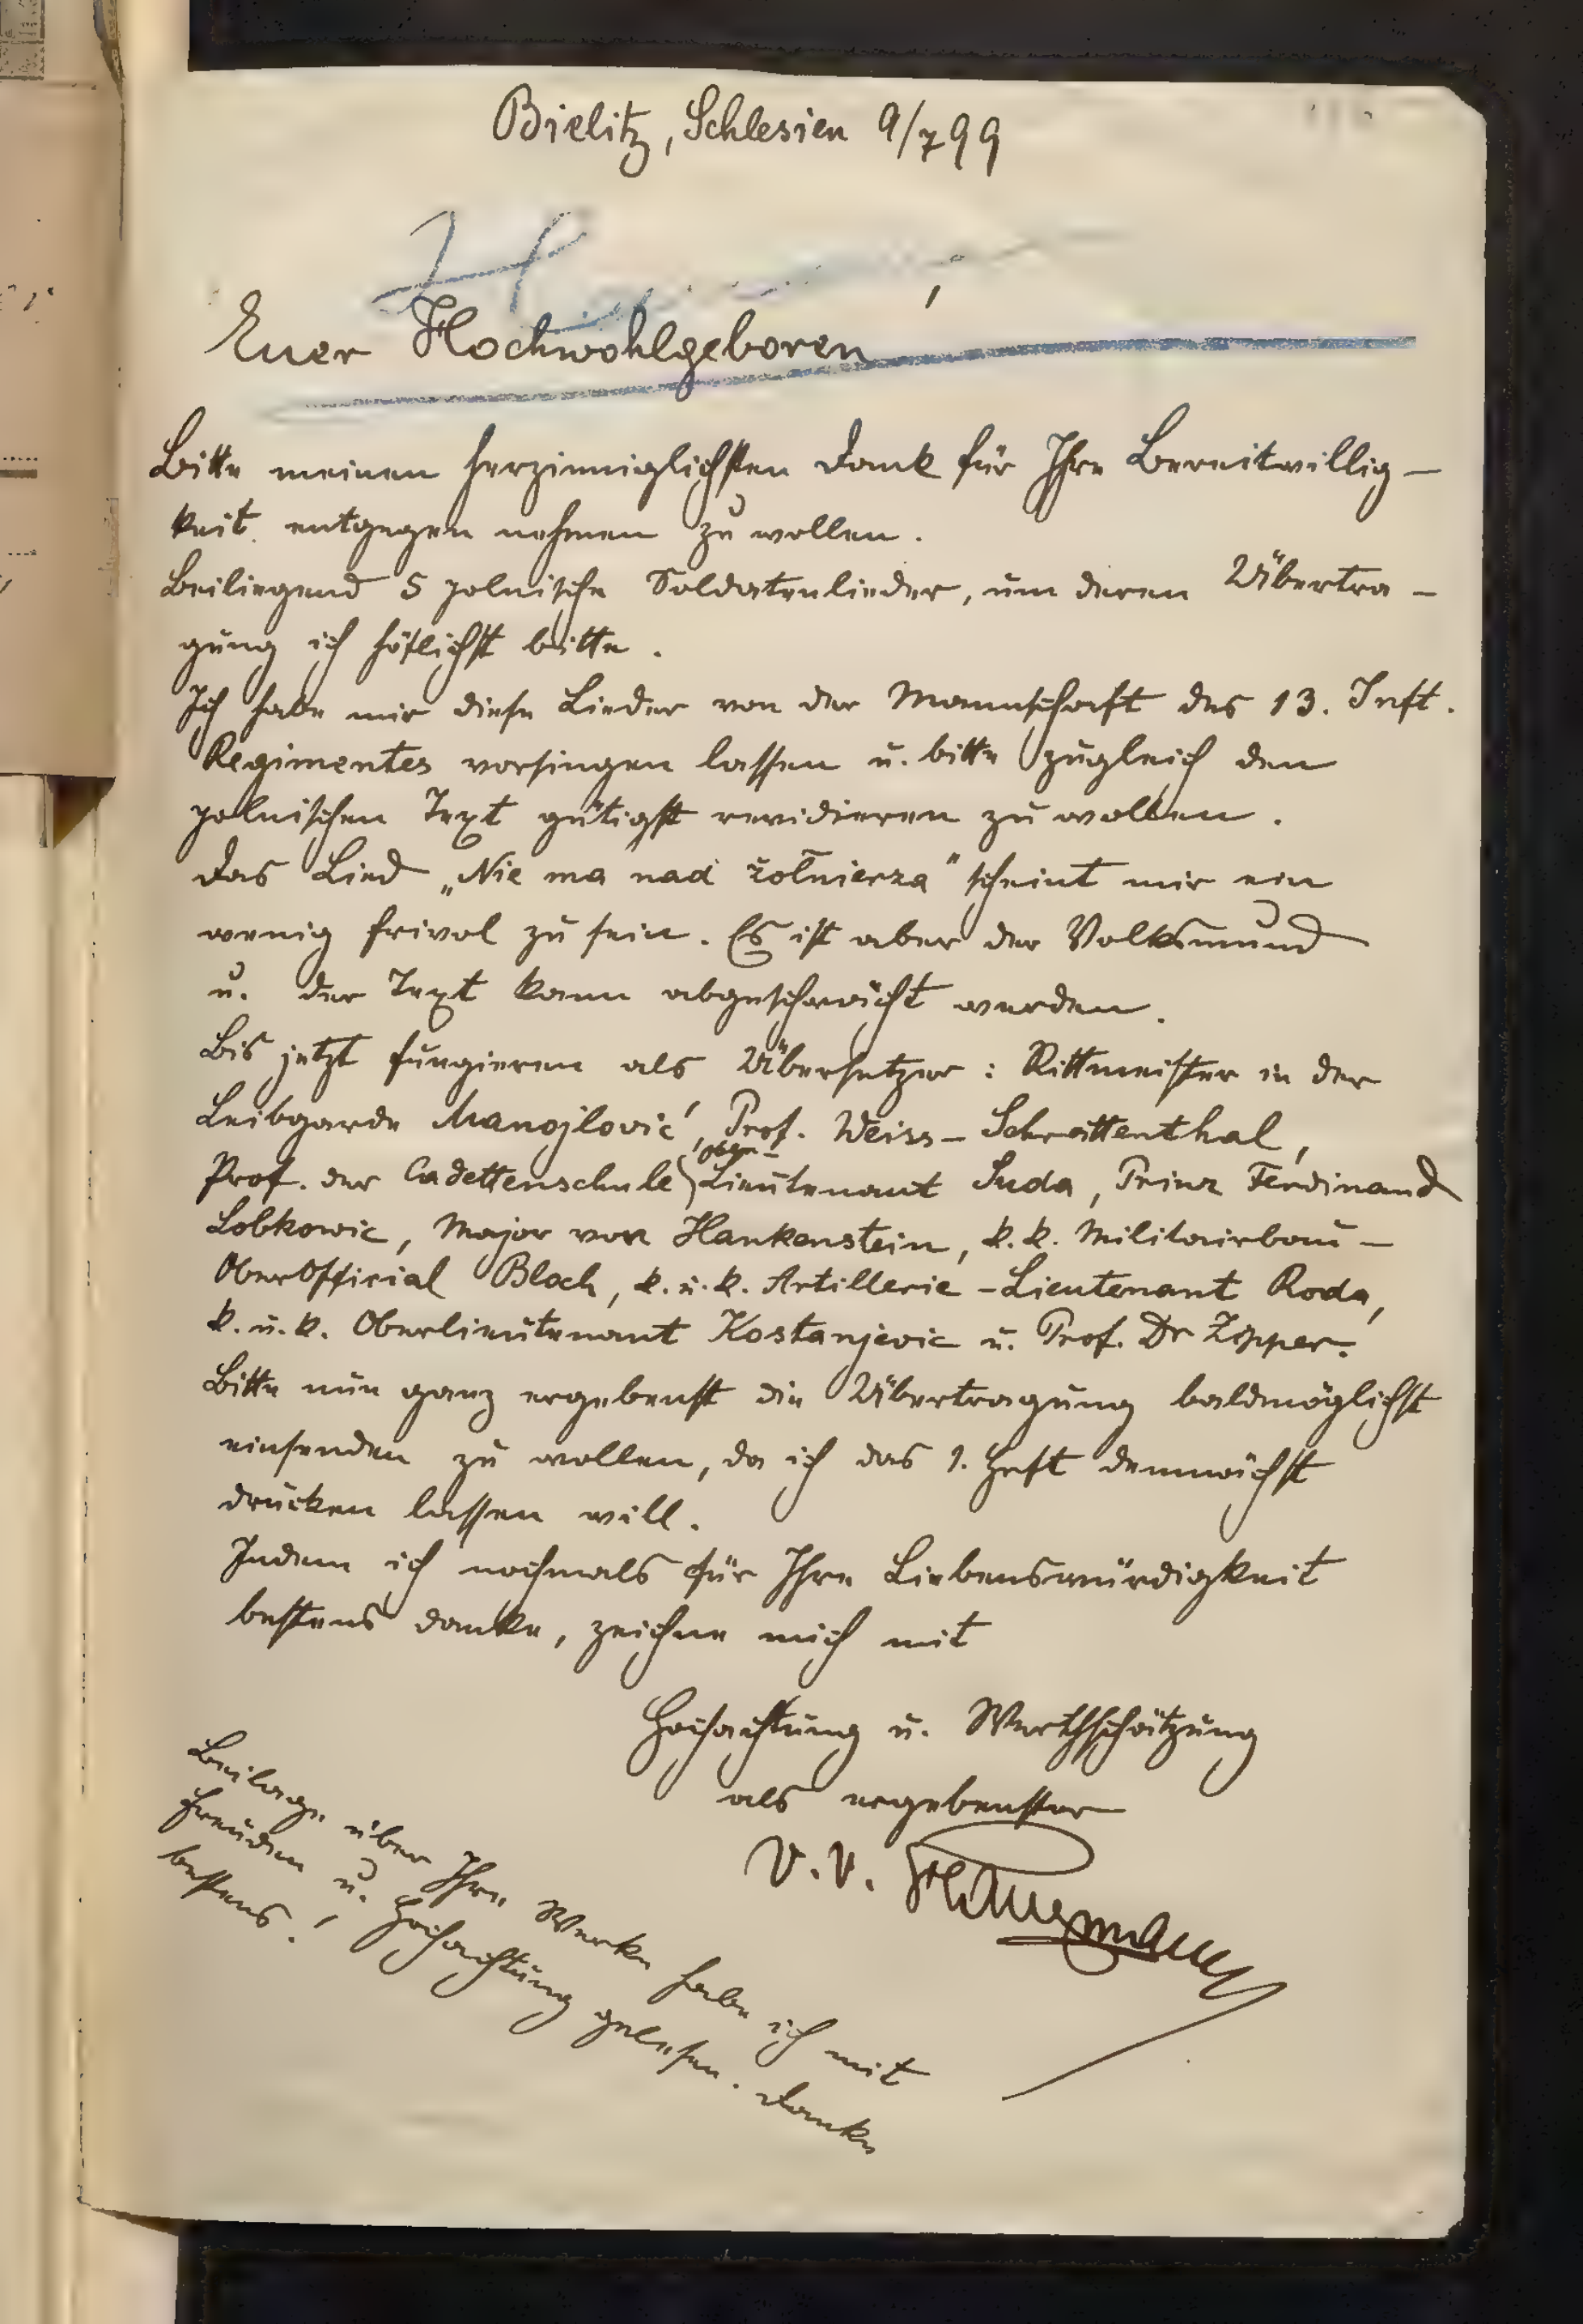 Bielitz, Schlesien 9/7 99
Euer Hochwohlgeboren!
Bitte meinen herzinniglichsten Dank für Ihre Bereitwillig-
keit entgegen nehmen zu wollen.
Beiliegend 5 polnische Soldatenlieder, um deren Übertra-
gung ich höflichst bitte.
Ich habe mir diese Lieder von der Mannschaft des 13. Inft.
Regimentes vorsingen lassen u. bitte zugleich den
polnischen Text gütigst revidieren zu wollen.
Das Lied „Nie ma nad żołnierza" scheint mir ein
wenig frivol zu sein. Es ist aber der Volksmund
u. der Text kann abgeschwächt werden.
Bis jetzt fungieren als Übersetzer: Rittmeister in der
Leibgarde Manojlović, Prof. Weiss-Schrattenthal,
Prof. der Cadettenschule Ober-Lieutenant Suda, Prinz Ferdinand
Lobkowic, Major von Hankenstein, k.k. Militairbau-
Oberofficial Bloch, k.u.k. Artillerie-Lieutenant Roda,
k.u.k. Oberlieutenant Kostanjevic u. Prof. Dr Zipper.
Bitte nun ganz ergebenst die Übertragung baldmöglichst
einsenden zu wollen, da ich das 1. Heft demnächst
drucken lassen will.
Indem ich nochmals für Ihre Liebenswürdigkeit
bestens danke, zeichne mich mit
Hochachtung u. Werthschätzung
als ergebenster
Beilage über Ihre Werke habe ich mit
Freuden u. Hochachtung gelesen. Danke
bestens!